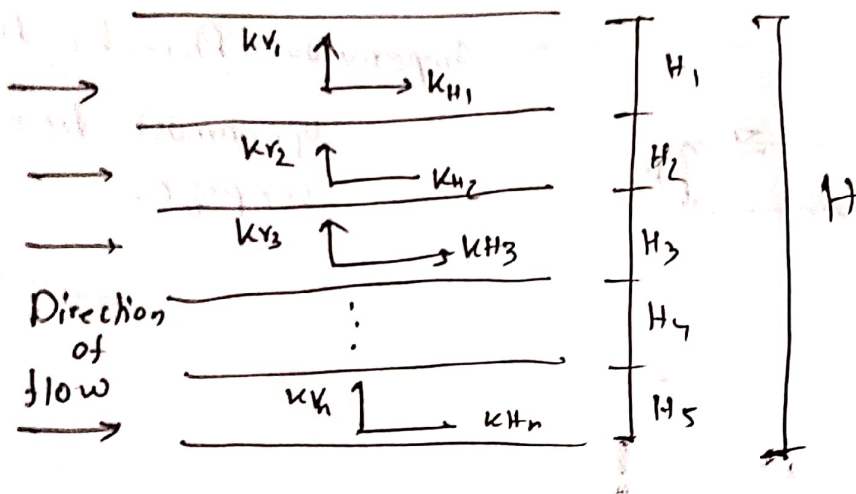 Kv₁
K_H₁
H₁
Kv₂
K_H₂
H₂
H
Kv₃
KH₃
H₃
Direction
of
flow
⋮
H₄
Kvₙ
KHₙ
H₅